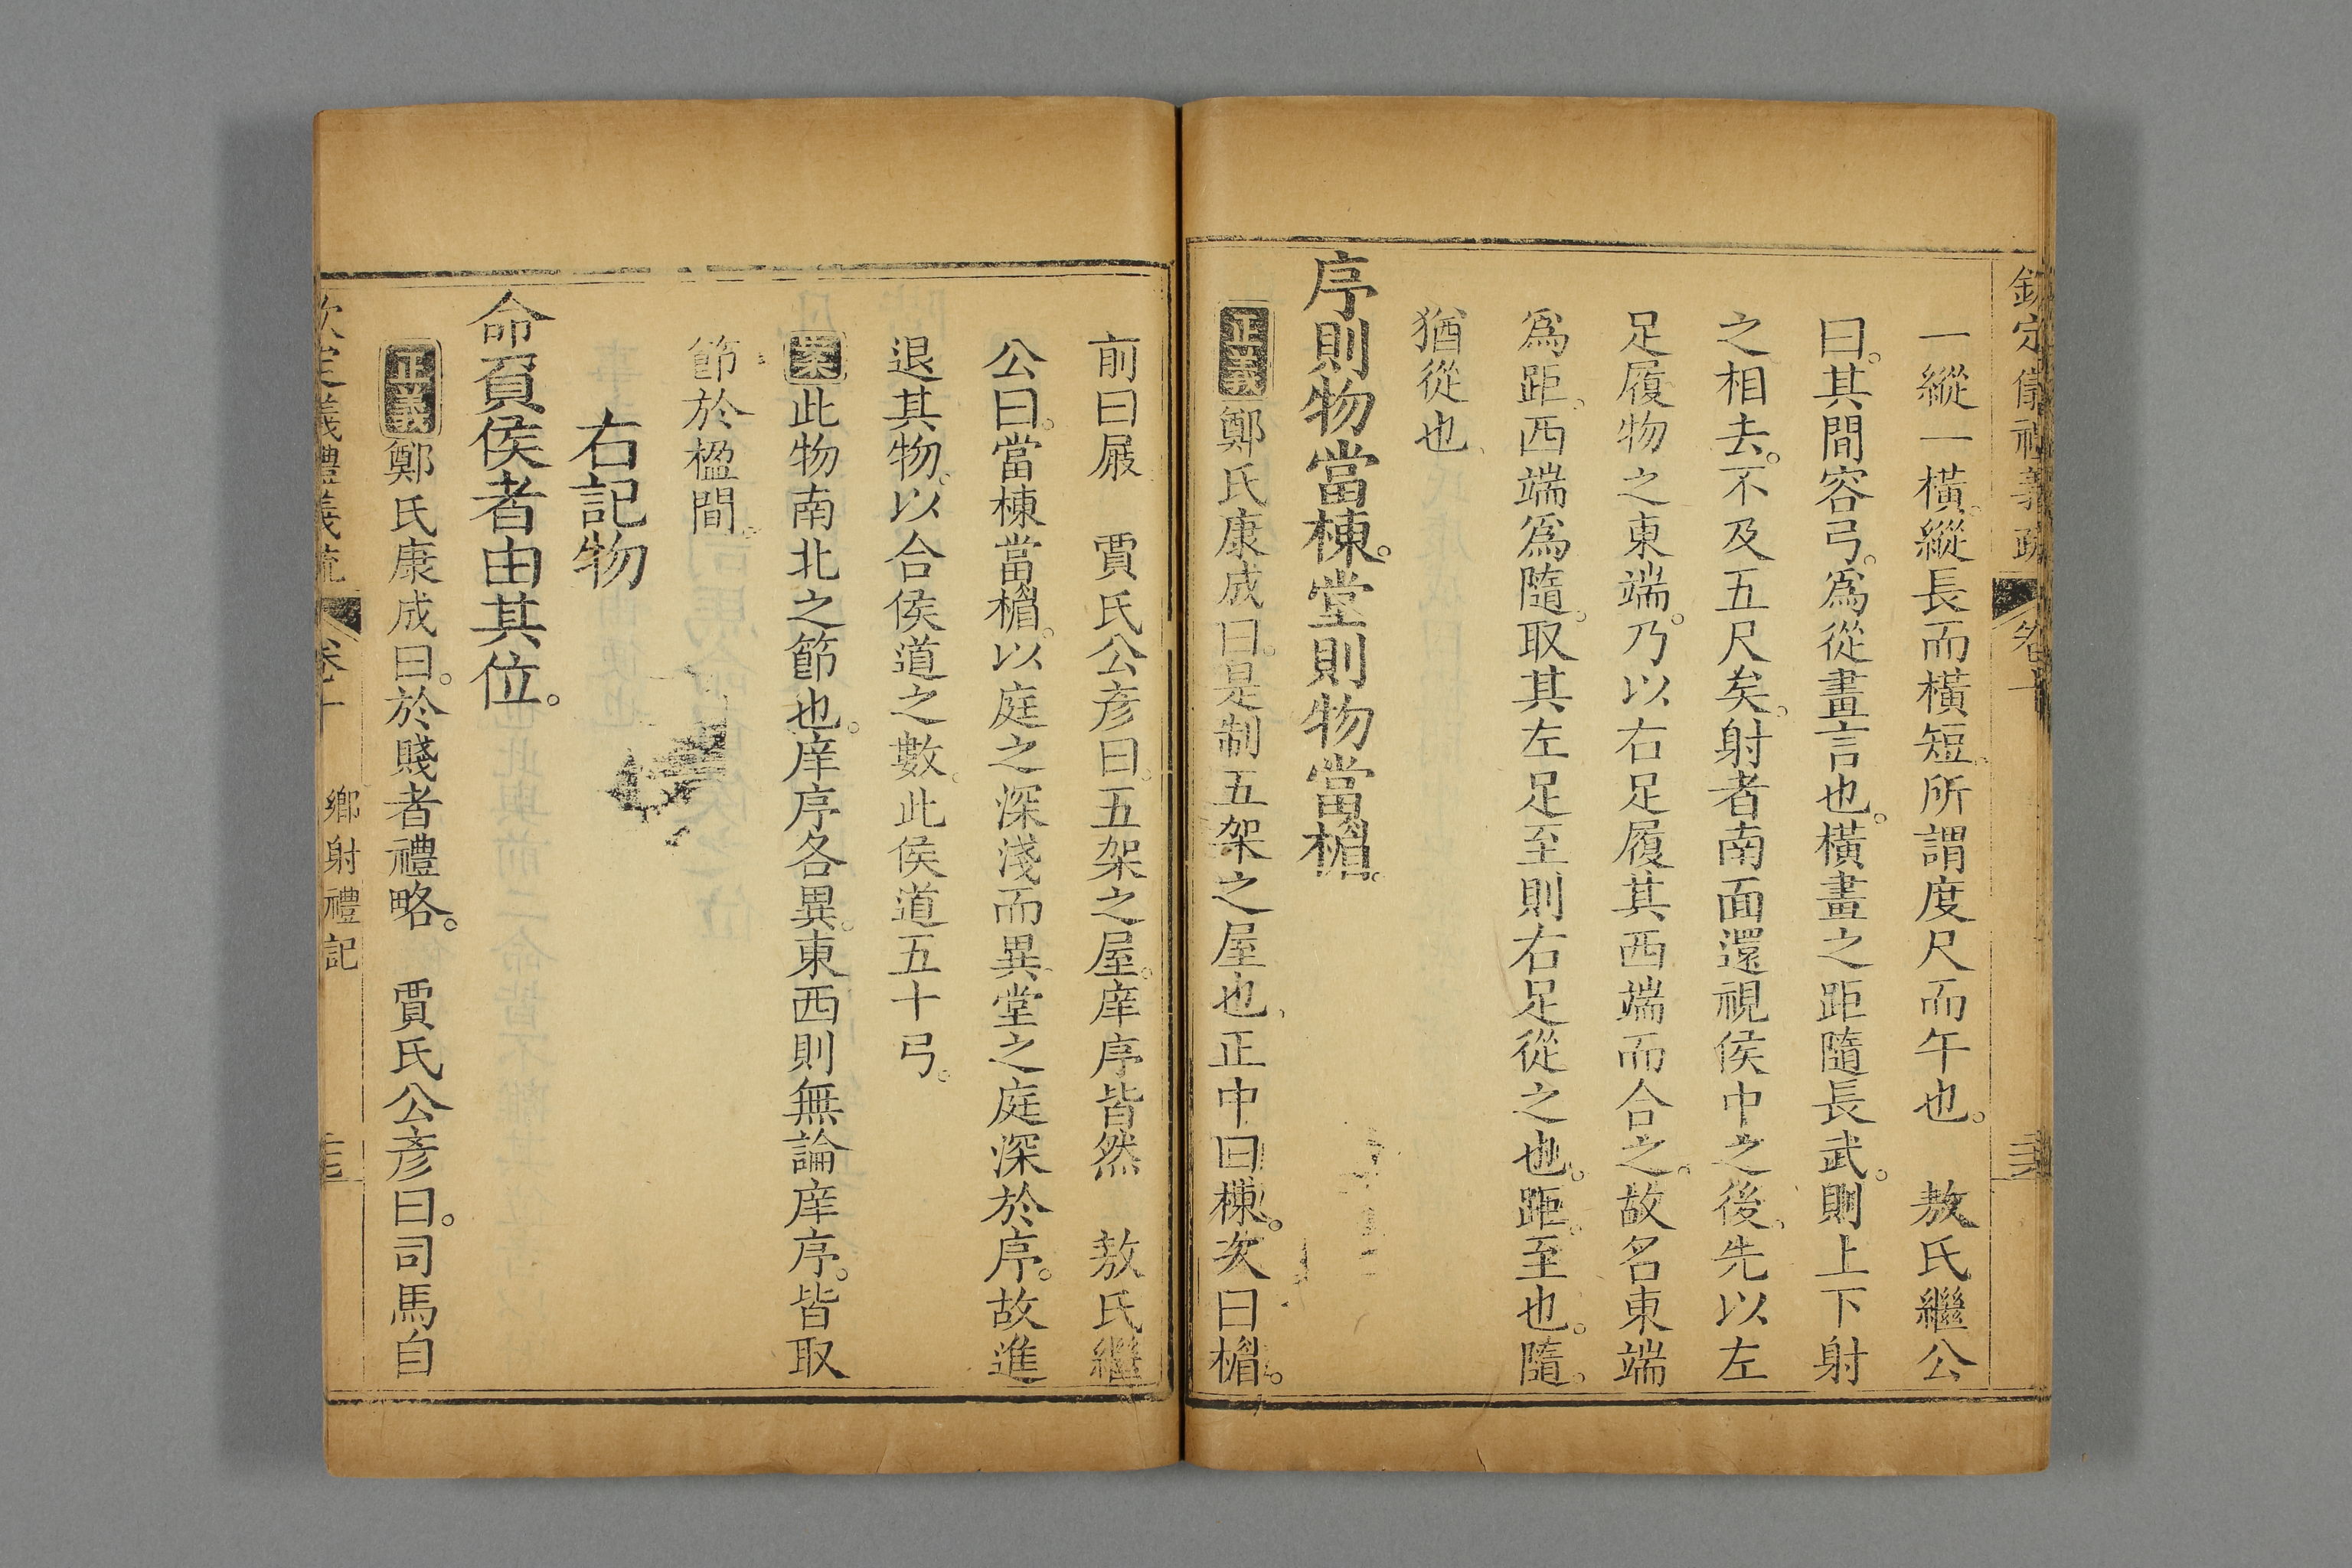 欽定儀禮義疏 卷十
一縱一橫。縱長而橫短。所謂度尺而午也。 敖氏繼公
曰。其間容弓。爲從畫言也。橫畫之距隨長武。則上下射
之相去。不及五尺矣。射者南面還視侯中之後。先以左
足履物之東端。乃以右足履其西端而合之。故名東端
爲距。西端爲隨。取其左足至則右足從之也。距。至也。隨。
猶從也。
序則物當棟。堂則物當楣。
正義鄭氏康成曰。是制五架之屋也。正中曰棟。次曰楣。
前曰庪 賈氏公彥曰。五架之屋。庠序皆然 敖氏繼
公曰。當棟當楣。以庭之深淺而異。堂之庭深於序。故進
退其物。以合侯道之數。此侯道五十弓。
案此物南北之節也。庠序各異。東西則無論庠序。皆取
節於楹間。
右記物
命負侯者由其位。
正義鄭氏康成曰。於賤者禮略。 賈氏公彥曰。司馬自
欽定儀禮義疏 卷十 鄉射禮記